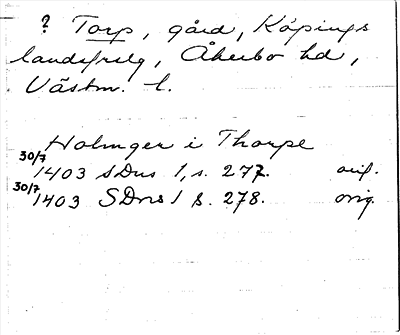 ? Torp, gård, Köpings
landsfrslg, Åkerbo hd,
Västm. l.
Holmger i Thorpe
30/7 1403 SDns 1, s. 277. orig.
30/7 1403 SDns 1 s. 278. orig.